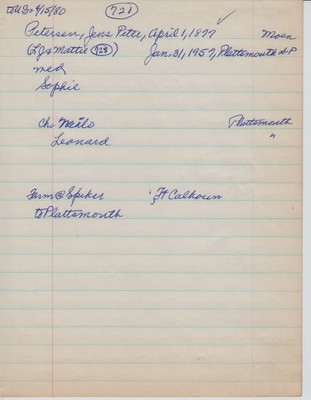 to US 9/15/80 721
Petersen, Jens Peter, April 1, 1877 Moen
(LJ & Mattie 723) Jan. 31, 1957, Plattsmouth
med
Sophie
Ch. Neils Plattsmouth
Leonard "
Farm @ Spiker Ft Calhoun
to Plattsmouth